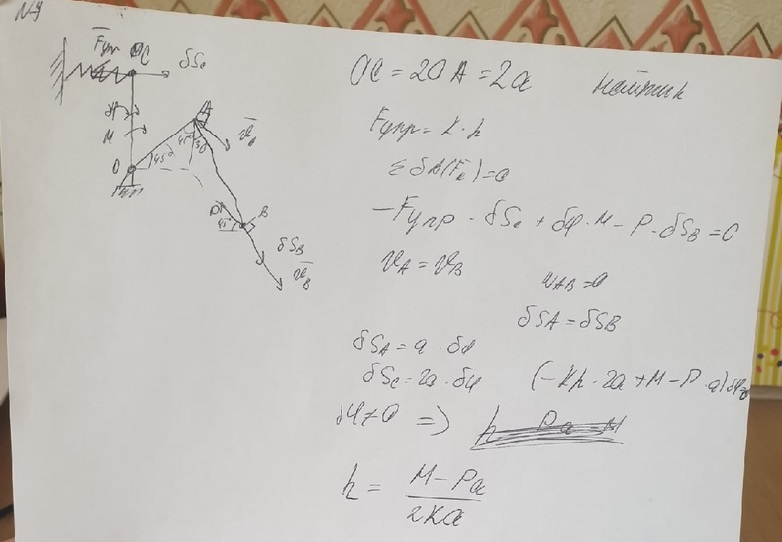 N9
F̄упр C δSc
δφ
M
O 45° 45° 30 A v̄A
45° B
δSB
v̄B
OC = 2OA = 2a Найти h
Fупр = k · h
Σ δA(Fк) = 0
−Fупр · δSc + δφ · M − P · δSB = 0
vA = vB
ωAB = 0
δSA = δSB
δSA = a δφ
δSc = 2a · δφ (−kh · 2a + M − P · a) δφ=0
δφ ≠ 0 ⇒
h = (M − Pa) / (2Ka)